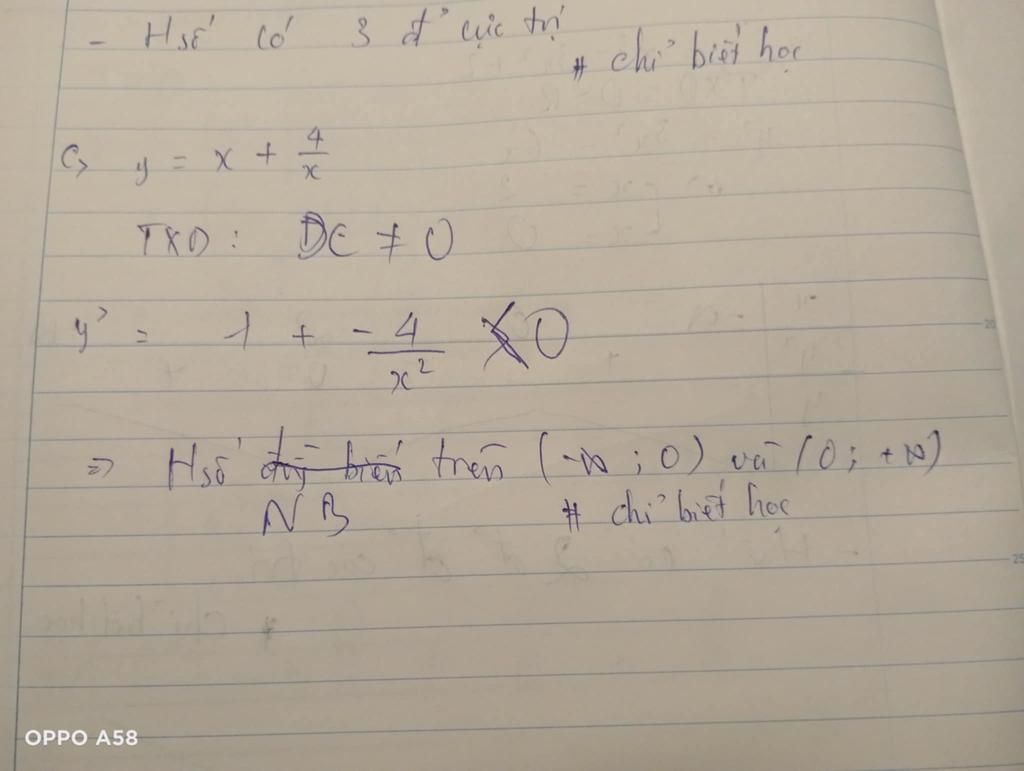 - Hsố có 3 đ' cực trị
# chỉ biết học
c, y = x + 4/x
TXD : DC ≠ 0
y' = 1 + -4/x² < 0
=> Hsố đồg biến trên (-∞ ; 0) và (0 ; +∞)
NB
# chỉ biết học
20
25
OPPO A58